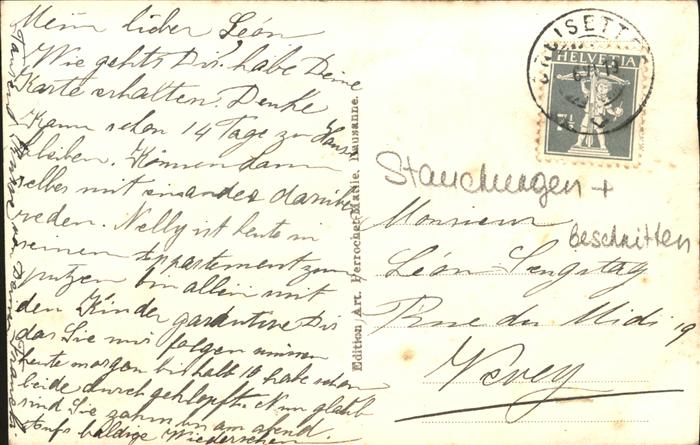 Mein lieber Léon
Wie gehts Dir? habe Deine
Karte erhalten. Denke
Kann schon 14 Tage zu Hause
bleiben. Können dann
selbes mit einander darüber
reden. Nelly ist heute in
seinen Appartement zum
putzen bin allein mit
den Kinder garantiere Dir
das Sie mir folgen müssen
heute morgen bis halb 10 habe schon
beide durchgeklopft. Nun glaub
sind Sie zahm bis am abend.
Aufs baldige Wiedersehen
Tausend von Deinem
Edition Art. Perrochet-Matile, Lausanne.
CROISETTES
HELVETIA
7½
Stauchungen +
beschnitten
Monsieur
Léon Sengstag
Rue du Midi 19
Vevey